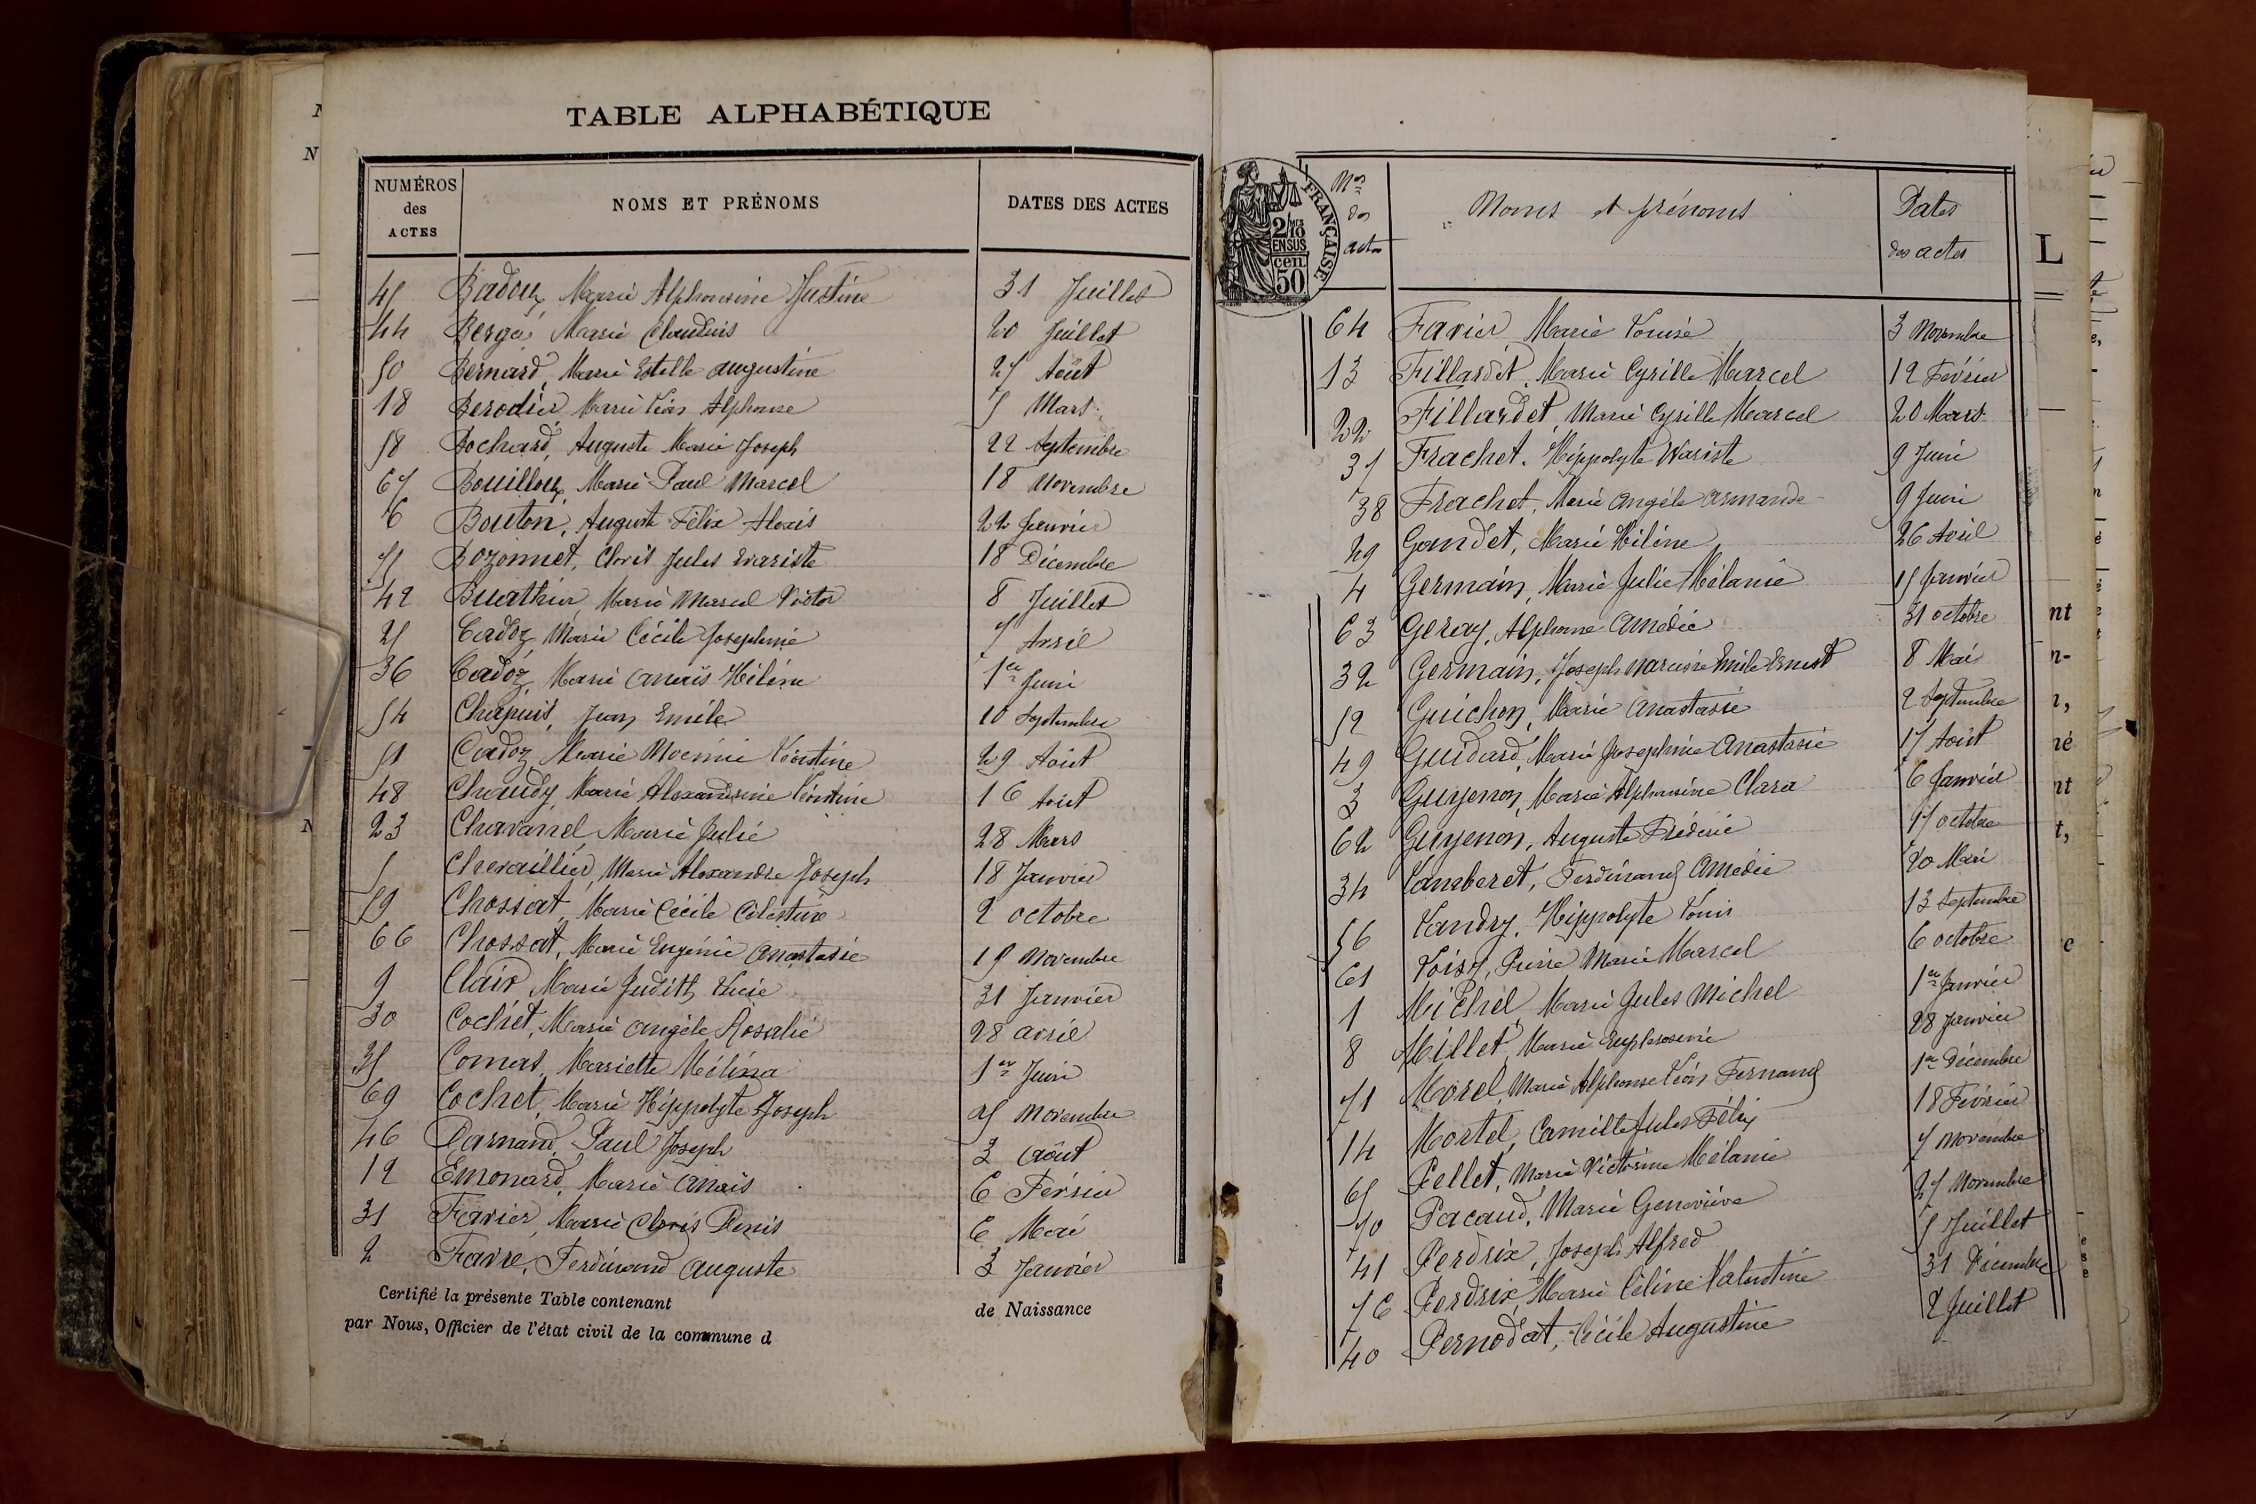 TABLE ALPHABÉTIQUE
NUMÉROS des ACTES NOMS ET PRÉNOMS DATES DES ACTES
45 Badoux, Marie Alphonsine Justine 31 Juillet
44 Berga, Marie Claudius 20 Juillet
50 Bernard, Marie Estelle Augustine 27 Août
18 Berodier Marie Léon Alphonse 5 Mars
58 Bochard, Auguste Marie Joseph 22 Septembre
67 Bouilloux, Marie Paul Marcel 18 Novembre
6 Bouton, Auguste Félix Alexis 22 Janvier
75 Bozonnet, Clovis Jules Evariste 18 Décembre
42 Buathier, Marie Marcel Victor 8 Juillet
25 Cadoz, Marie Cécile Josephine 7 Avril
36 Cadoz, Marie Anaïs Hélène 1er Juin
54 Chapuis, Jean Emile 10 Septembre
51 Cadoz, Marie Noémie Léontine 29 Août
48 Chaudy, Marie Alexandrine Léontine 16 Août
23 Chavanel, Marie Julie 28 Mars
5 Chevaillier, Marie Alexandre Joseph 18 Janvier
59 Chossat, Marie Cécile Célestine 2 octobre
66 Chossat, Marie Eugénie Anastasie 15 Novembre
9 Clair, Marie Judith Lucie 31 Janvier
30 Cochet, Marie Angèle Rosalie 28 avril
35 Comas, Mariette Mélina 1er Juin
69 Cochet, Marie Hippolyte Joseph 25 Novembre
46 Darnand, Paul Joseph 3 Août
12 Emonard, Marie Anaïs 6 Février
31 Favier, Marie Clovis Denis 6 Mai
2 Favre, Ferdinand Auguste 3 Janvier
Certifié la présente Table contenant de Naissance
par Nous, Officier de l'état civil de la commune d
FRANÇAISE
2/10es
EN SUS
cen.
50
Nos des actes Noms et prénoms Dates des actes
64 Favier, Marie Louise 3 Novembre
13 Fillardet, Marie Cyrille Marcel 12 Février
22 Fillardet, Marie Cyrille Marcel 20 Mars
37 Frachet, Hippolyte Evariste 9 Juin
38 Frachet, Marie Angèle Armande 9 Juin
29 Gandet, Marie Hélène 26 Avril
4 Germain, Marie Julie Mélanie 15 Janvier
63 Geray, Alphonse Amédée 31 octobre
32 Germain, Joseph Narcisse Emile Ernest 8 Mai
52 Guichon, Marie Anastasie 2 Septembre
49 Guidard, Marie Josephine Anastasie 17 Août
3 Guyenon, Marie Alphonsine Clara 6 Janvier
62 Guyenon, Auguste Frédéric 17 octobre
34 Lamberet, Ferdinand Amédée 20 Mai
56 Landry, Hippolyte Louis 13 Septembre
61 Loisy, Pierre Marie Marcel 6 octobre
1 Michel, Marie Jules Michel 1er Janvier
8 Millet, Marie Euphrosine 28 Janvier
71 Morel, Marie Alphonse Léon Fernand 1er Décembre
14 Mortel, Camille Jules Félix 18 Février
65 Pellet, Marie Victorine Mélanie 7 Novembre
70 Pacaud, Marie Geneviève 27 Novembre
41 Perdrix, Joseph Alfred 5 Juillet
76 Perdrix, Marie Céline Valentine 31 Décembre
40 Pernodat, Cécile Augustine 2 Juillet